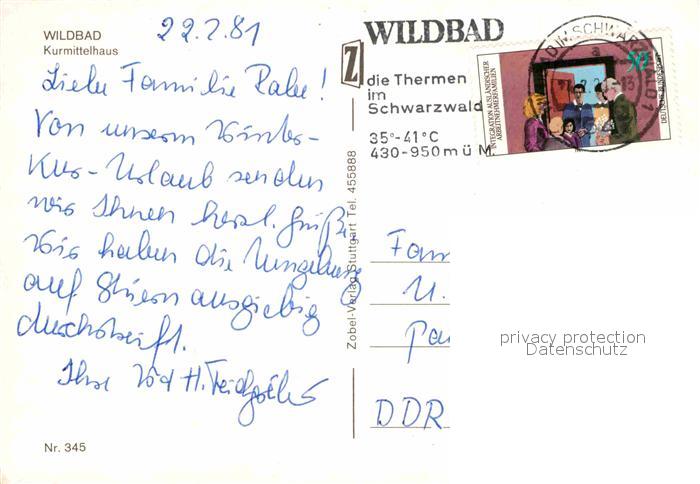 WILDBAD
Kurmittelhaus
22.2.81
Liebe Familie Rabe!
Von unserm Winter-
Kur-Urlaub senden
wir Ihnen herzl. Grüße.
Wir haben die Umgebung
auf Skiern ausgiebig
durchstreift.
Ihre
Nr. 345
Zobel-Verlag Stuttgart Tel. 455888
Z
WILDBAD
die Thermen
im
Schwarzwald
35°-41°C
430-950 m ü M.
INTEGRATION AUSLÄNDISCHER
ARBEITNEHMERFAMILIEN
DEUTSCHE BUNDESPOST
50
Fam
U.
DDR
privacy protection
Datenschutz